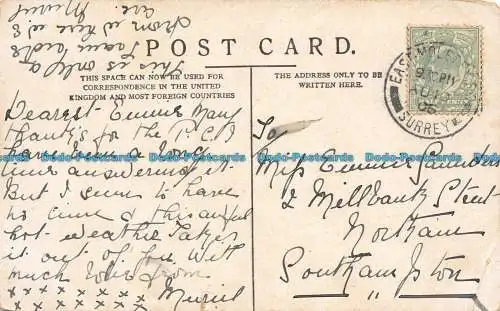 This is only a
2 cans ride
from where we
are. Muriel
POST CARD.
THIS SPACE CAN NOW BE USED FOR
CORRESPONDENCE IN THE UNITED
KINGDOM AND MOST FOREIGN COUNTRIES
THE ADDRESS ONLY TO BE
WRITTEN HERE.
EAST MOLE
SURREY
Dearest Emmie Many
thanks for the P.C. I
have been a long
time answering it.
But I seem to have
no time & this awful
hot weather takes
it out of you. With
much love from
x x x x x x x x Muriel
x x x x x x x
To
Miss Emmie Saunders
2 Millbank Street
Northam
Southampton
Dodo-Postcards Dodo-Postcards Dodo-Postcards Dodo-Postcards